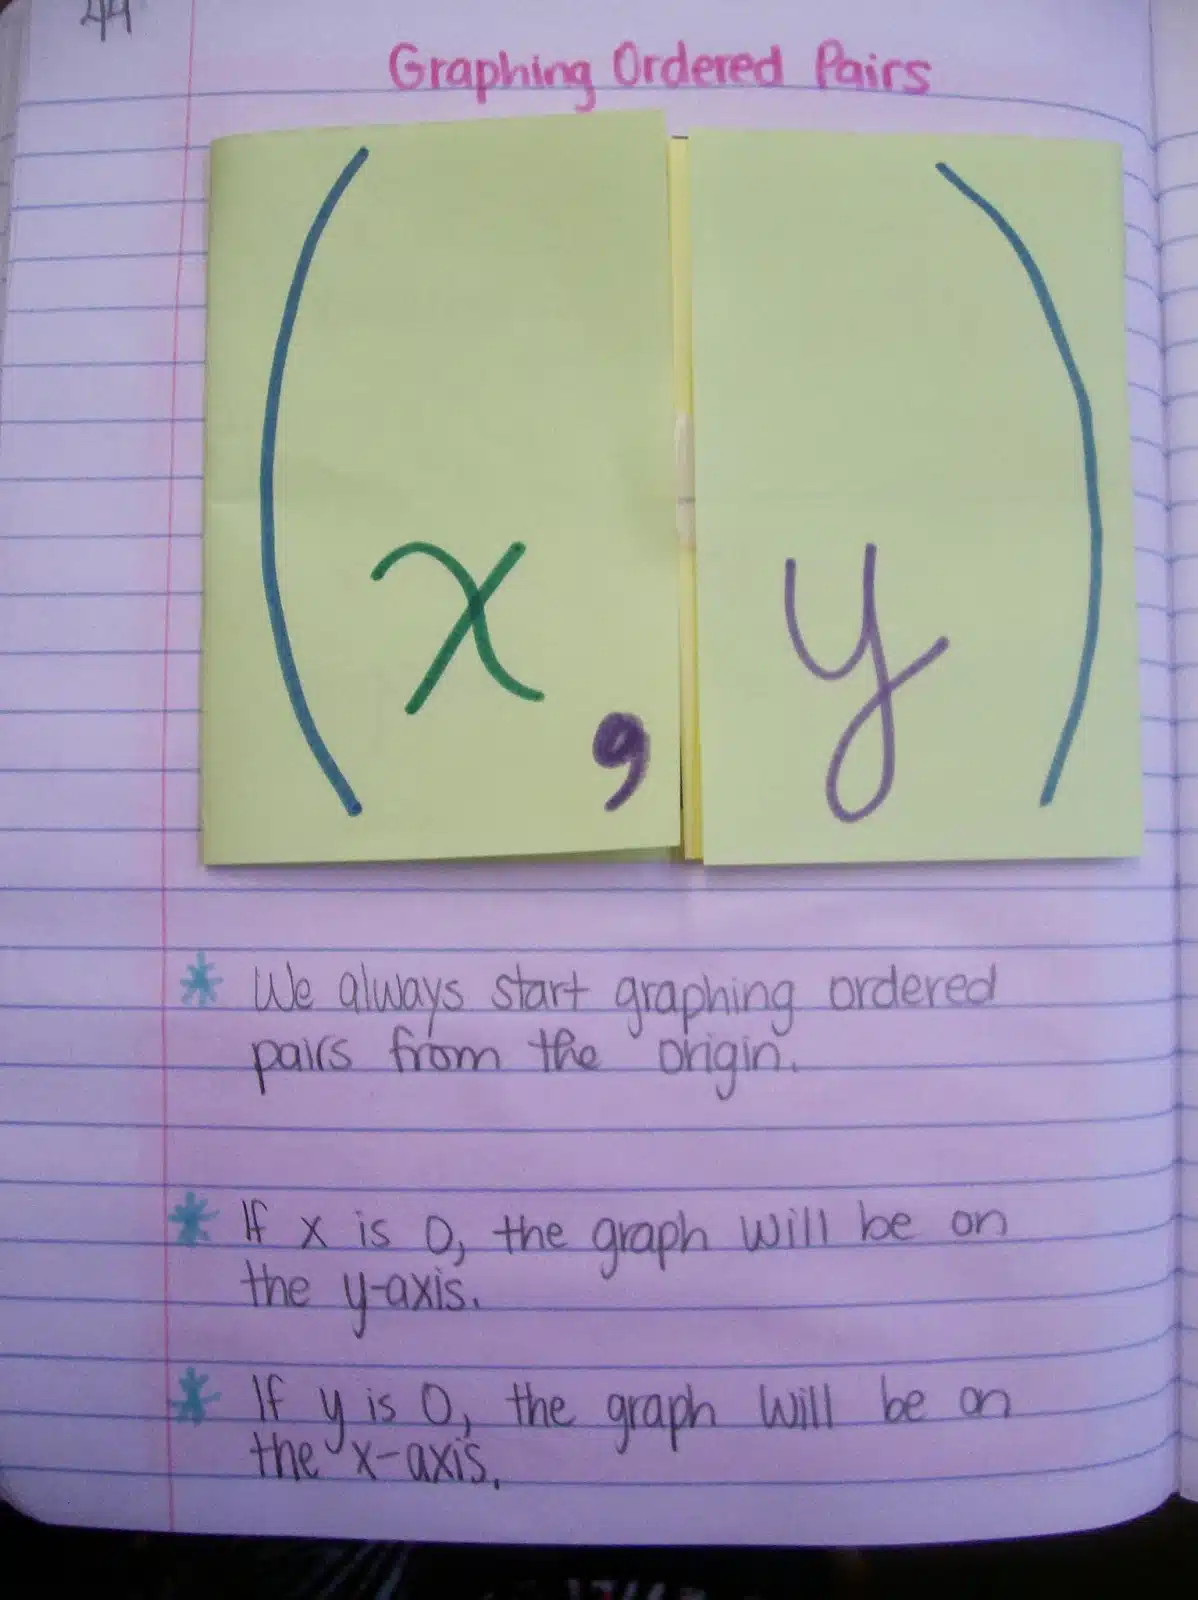 44
Graphing Ordered Pairs
(x, y)
* We always start graphing ordered
pairs from the origin.
* If x is 0, the graph will be on
the y-axis.
* If y is 0, the graph will be on
the x-axis.